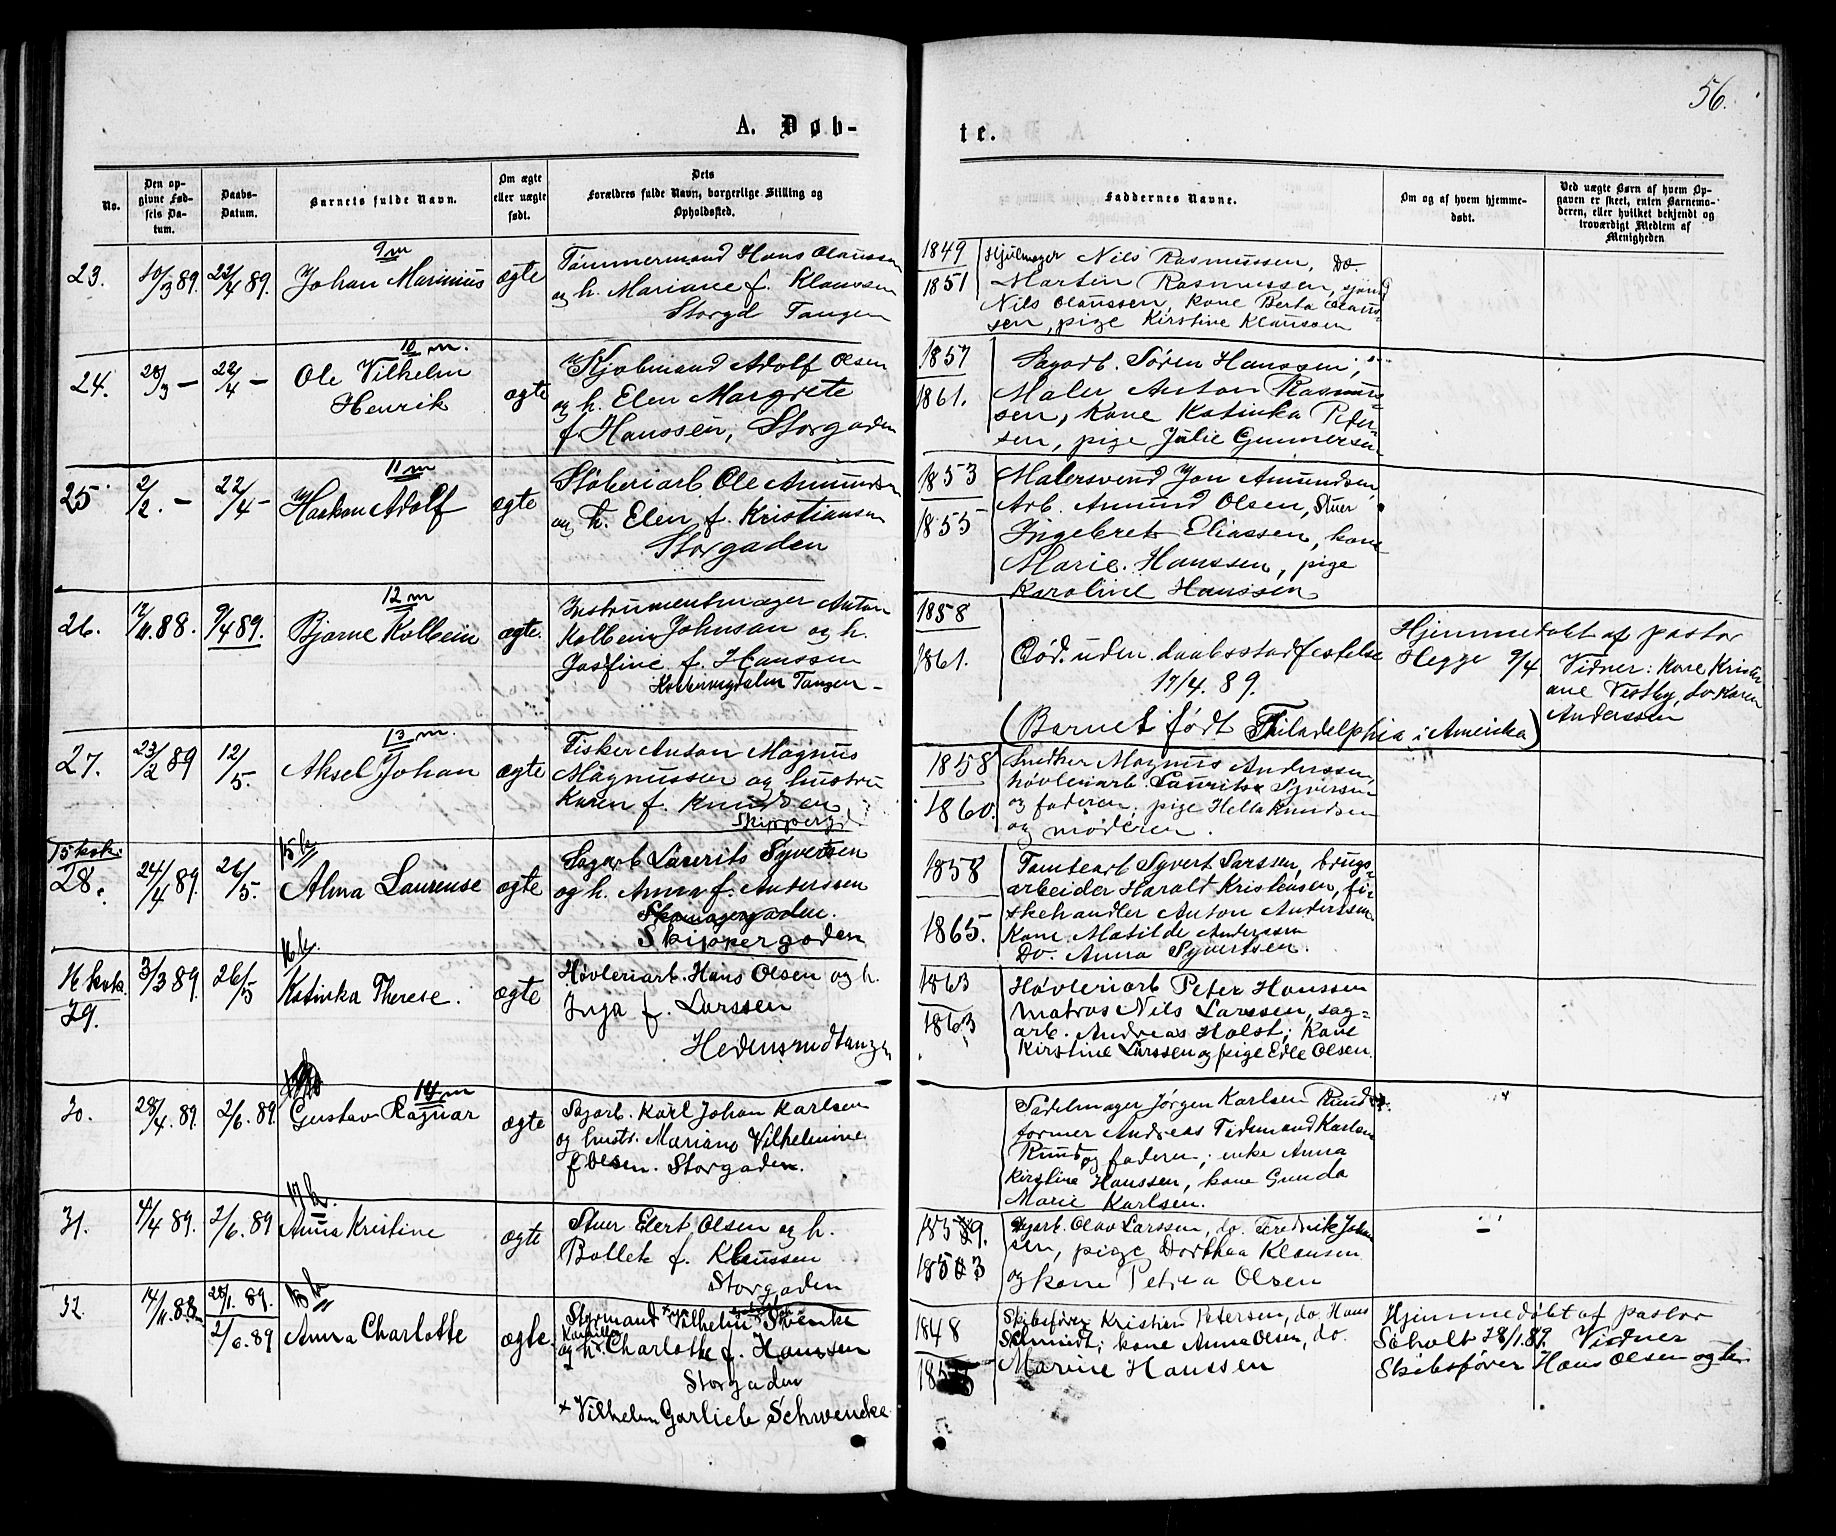 56.
A. Døb-
te.
No.
Den op-
givne Fød-
sels Da-
tum.
Daabs-
Datum.
Barnets fulde Navn.
Om ægte
eller uægte
født.
Dets
Forældres fulde Navn, borgerlige Stilling og
Opholdssted.
Faddernes Navne.
Om og af hvem hjemme-
døbt.
Ved uægte Børn af hvem Op-
gaven er skeet, enten Barnemo-
deren, eller hvilket bekjendt og
troværdigt Medlem af
Menigheden
9 m
23. 10/3 89. 22/4 89. Johan Marinius ægte
Tømmermand Hans Olaussen
og h. Mariane f. Klaussen
Storgd Tangen
1849
1851
Hjulmager Nils Rasmussen, Do.
Martin Rasmussen,
Nils Olaussen, kone Berta Olaus-
sen, pige Kirstine Klaussen
10 m.
24. 28/3 — 22/4 — Ole Vilhelm
Henrik
ægte
Kjøbmand Adolf Olsen
og h. Elen Margrete
f Hanssen, Storgaden
1857
1861.
Sagarb. Søren Hanssen,
Maler Anton Rasmus-
sen, kone Katinka Peter-
sen, pige Julie Gunnersen
11 m
25 2/2. — 22/4 — Haakon Adolf ægte
Støberiarb Ole Amundsen
og h. Elen f. Kristiansen
Storgaden
1853
1855
Malersvend Jon Amundsen,
Arb. Amund Olsen, Stuer
Ingebret Eliassen, kone
Marie Hanssen, pige
Karoline Hanssen
12 m
26. 12/11 88. 9/4 89. Bjarne Kolbein ægte.
Instrumentmager Anton
Kolbein Johnsan og h.
Josfine f. Hanssen
Tangen
1858
1861.
Død. uden daabsstadfestelse
17/4. 89.
(Barnet født Philadelphia i Amerika)
Hjemmedøbt af pastor
Hegge 9/4 Vidner: kone Kristi-
ane Vestby, do Karen
Anderssen
13 m.
27. 23/2 89 12/5. Aksel Johan ægte
Fisker Anton Magnus
Magnussen og hustru
Karen f. Knudsen,
Skippergd.
1858
1860.
Snedker Magnus Anderssen,
høvleriarb. Laurits Syversen
og faderen, pige Hella Knudsen
og moderen.
15 kvk.
15 k
28. 24/4 89. 26/5. Alma Laurense ægte
Sagarb Laurits Syvertsen
og h. Anna f. Anderssen
Skomagergaden.
Skippergaden
1858
1865.
Tomtearb Syvert Larssen, brugs-
arbeider Harald Kristensen, fi-
skehandler Anton Anderssen
Kone Matilde Anderssen
Do. Anna Syvertsen.
16 k
16 kvk.
29. 3/3 89. 26/5 Katinka Therese. ægte
Høvleriarb. Hans Olsen og h.
Inga f. Larssen
Hedensrudtangen
1863
1863
Høvleriarb Peter Hanssen
matros Nils Larssen, sag-
arb. Andreas Holst; Kone
Kirstine Larssen og pige Edle Olsen.
14 m
30. 28/4. 89. 2/6. 89. Gustav Ragnar ægte
Sagarb. Karl Johan Karlsen
og hustr. Mariane Vilhelmine
f Olsen. Storgaden.
Sadelmager Jørgen Karlsen Rund
former Andreas Tidemand Karlsen
Rund og faderen; enke Anna
Kirstine Hanssen, kone Gunda
Marie Karlsen.
17 k.
31. 4/4 89. 2/6. 89 Anna Kristine ægte
Stuer Elert Olsen og h.
Bollek f. Klaussen
Storgaden
1859.
1853
Sagarb. Olav Larssen, do. Fredrik John
sen, pige Dorthea Klausen
og kone Petrea Olsen
18 k
32. 14/11. 88. 28/1. 89.
2/6. 89 Anna Charlotte ægte.
Styrmand Vilhelm Svenke
og h. Charlotte f. Hanssen
Storgaden
+ Vilhelm Garlieb Schwencke
1848
Skibsfører Kristian Petersen, do. Hans
Schmidt; kone Anna Olsen, do.
Marine Hanssen
Hjemmedøbt af pastor
Søholt 28/1. 89. Vidner
Skibsfører Hans Olsen og